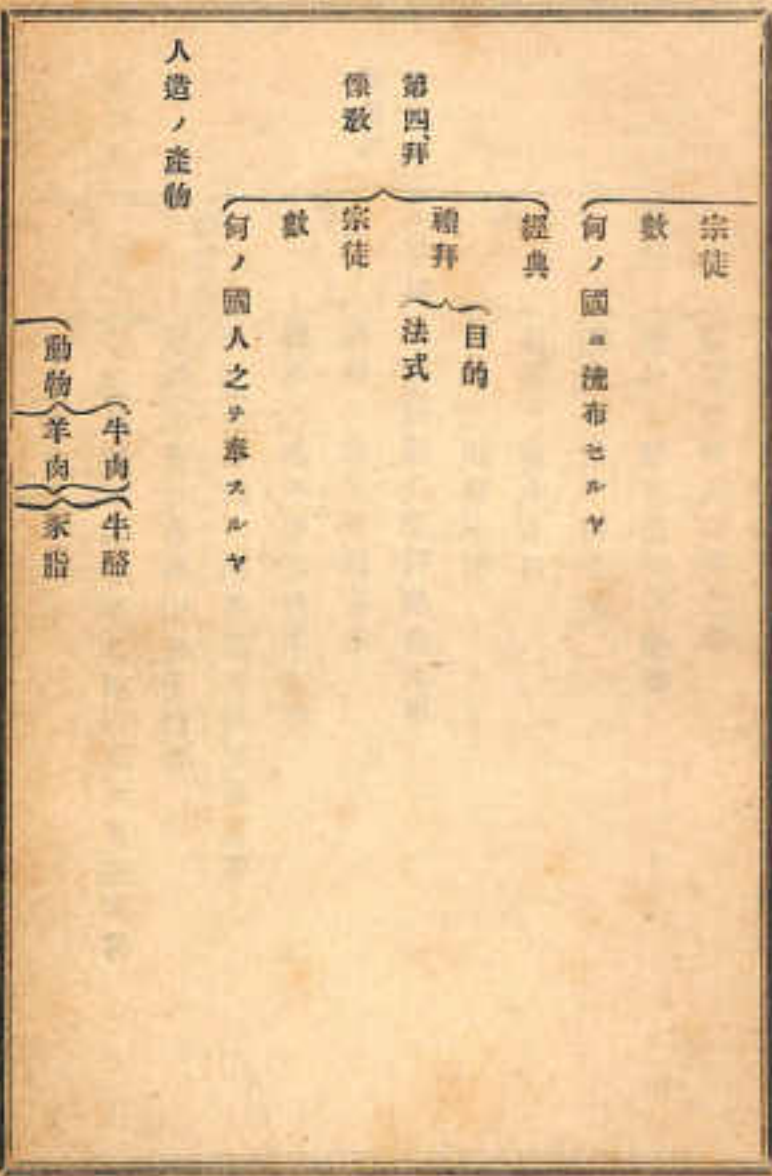 宗徒
數
何ノ國ニ流布セルヤ
第四、拜
像敎
經典
禮拜
目的
法式
宗徒
數
何ノ國人之ヲ奉スルヤ
人造ノ產物
牛肉
牛酪
動物
羊肉
豕脂